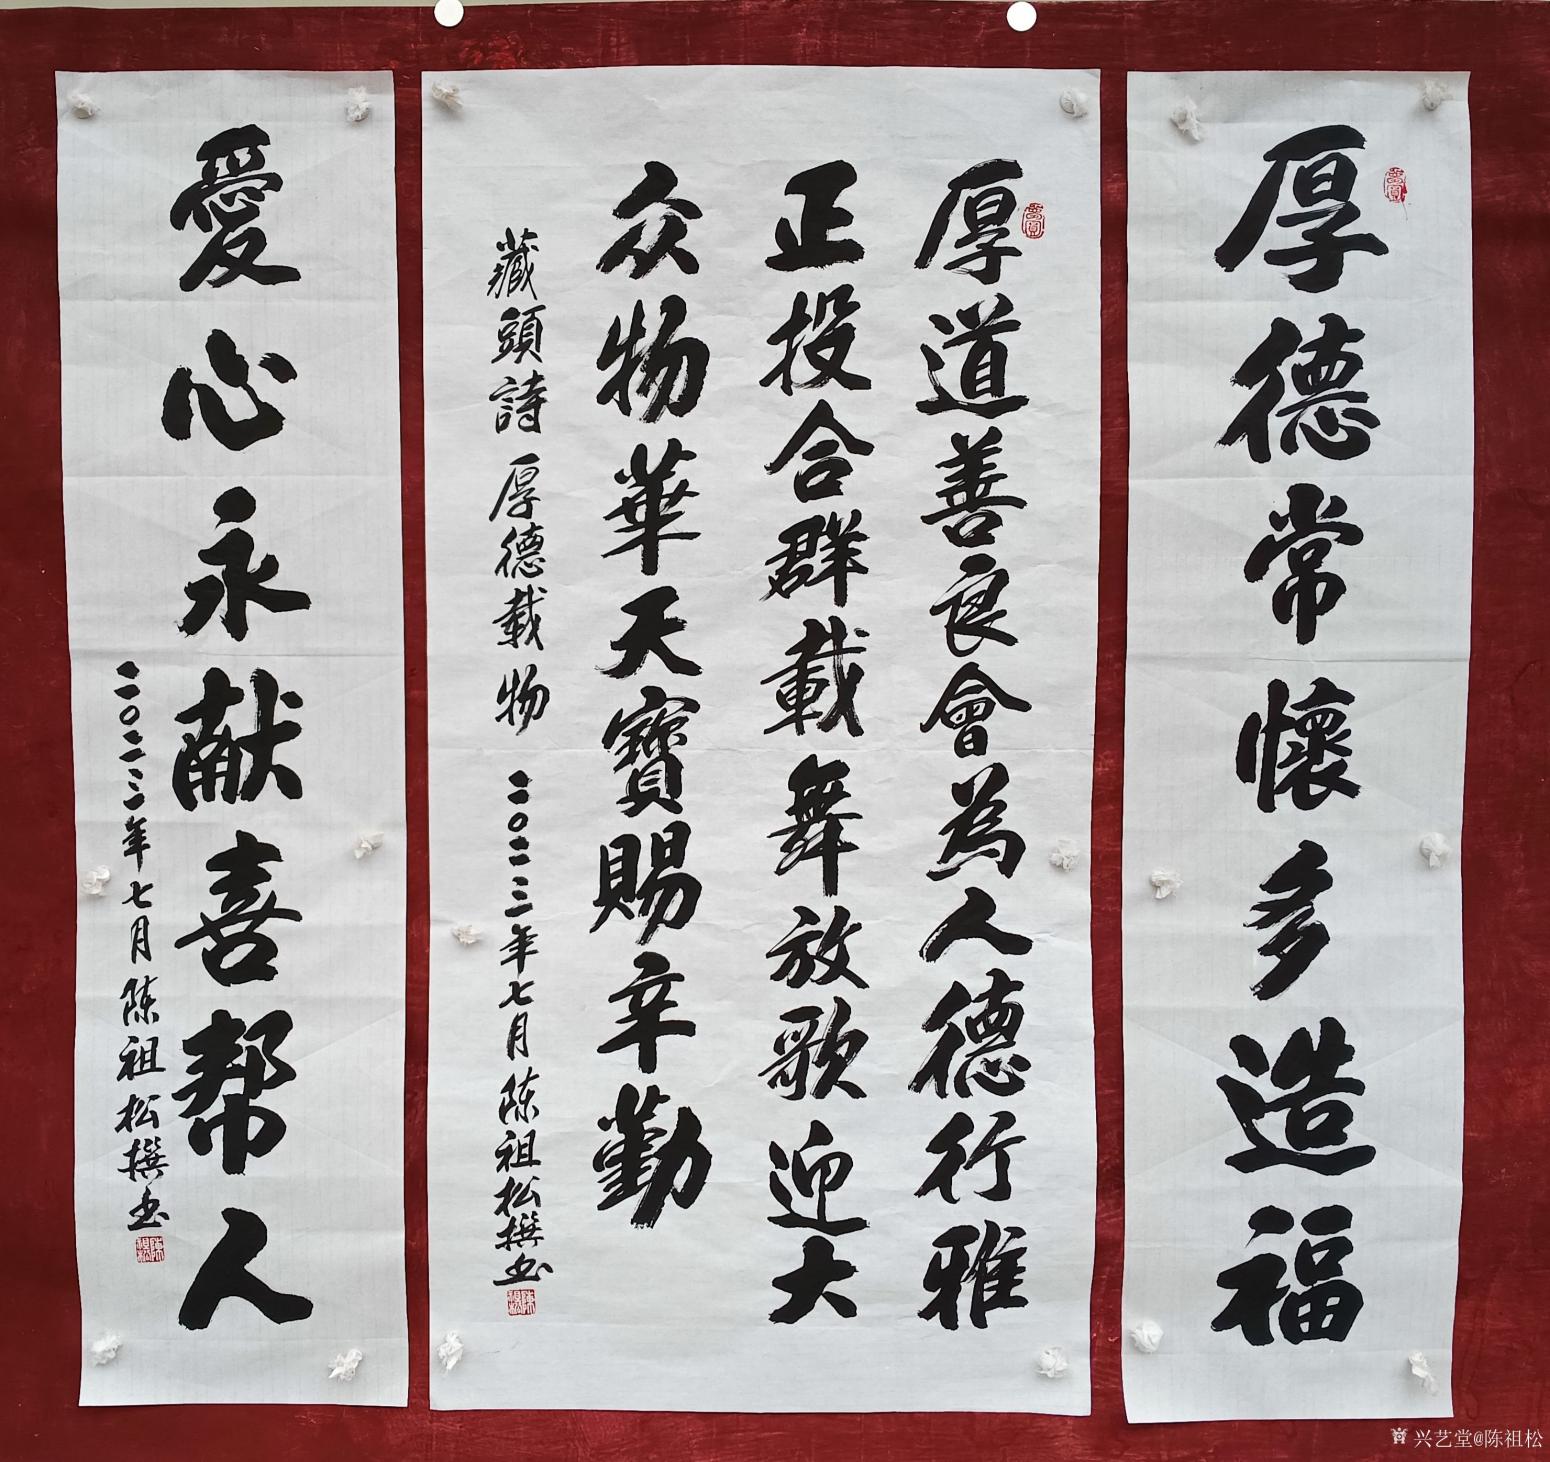 厚德常懷多造福
厚道善良會為人德行雅
正投合群載舞放歌迎大
众物華天寶賜辛勤
藏頭詩 厚德載物 二〇二三年七月 陈祖松撰书
愛心永献喜帮人
二〇二三年七月 陈祖松撰书
兴艺堂@陈祖松